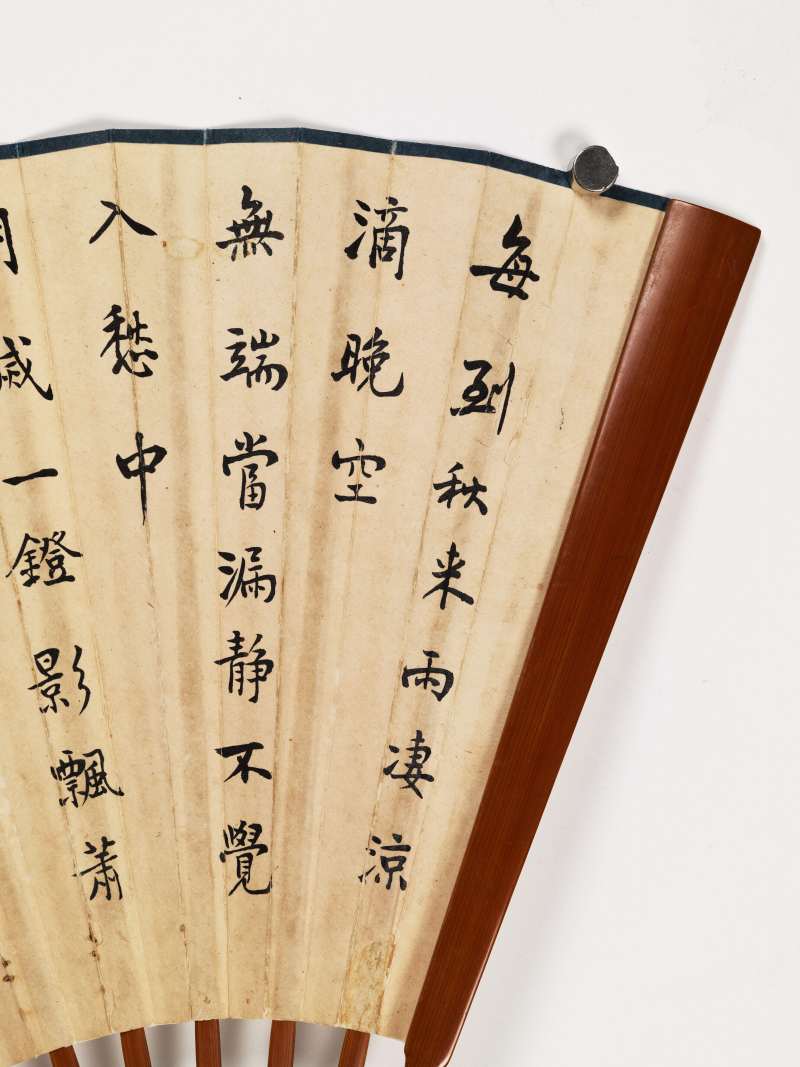 每到秋来雨凄涼
滴晚空
無端當漏静不覺
入愁中
歲一鐙影飄蕭